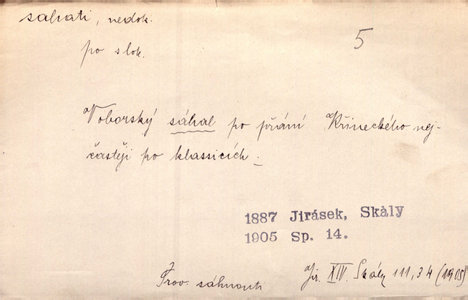 sahati, nedok.
po slok.
5
Voborský sáhal po přání Křineckého nej-
častěji po klassicích.
1887 Jirásek, Skàly
1905 Sp. 14.
Srov. sáhnouti
Jir. XIV. Skály 111, 34 (1905)